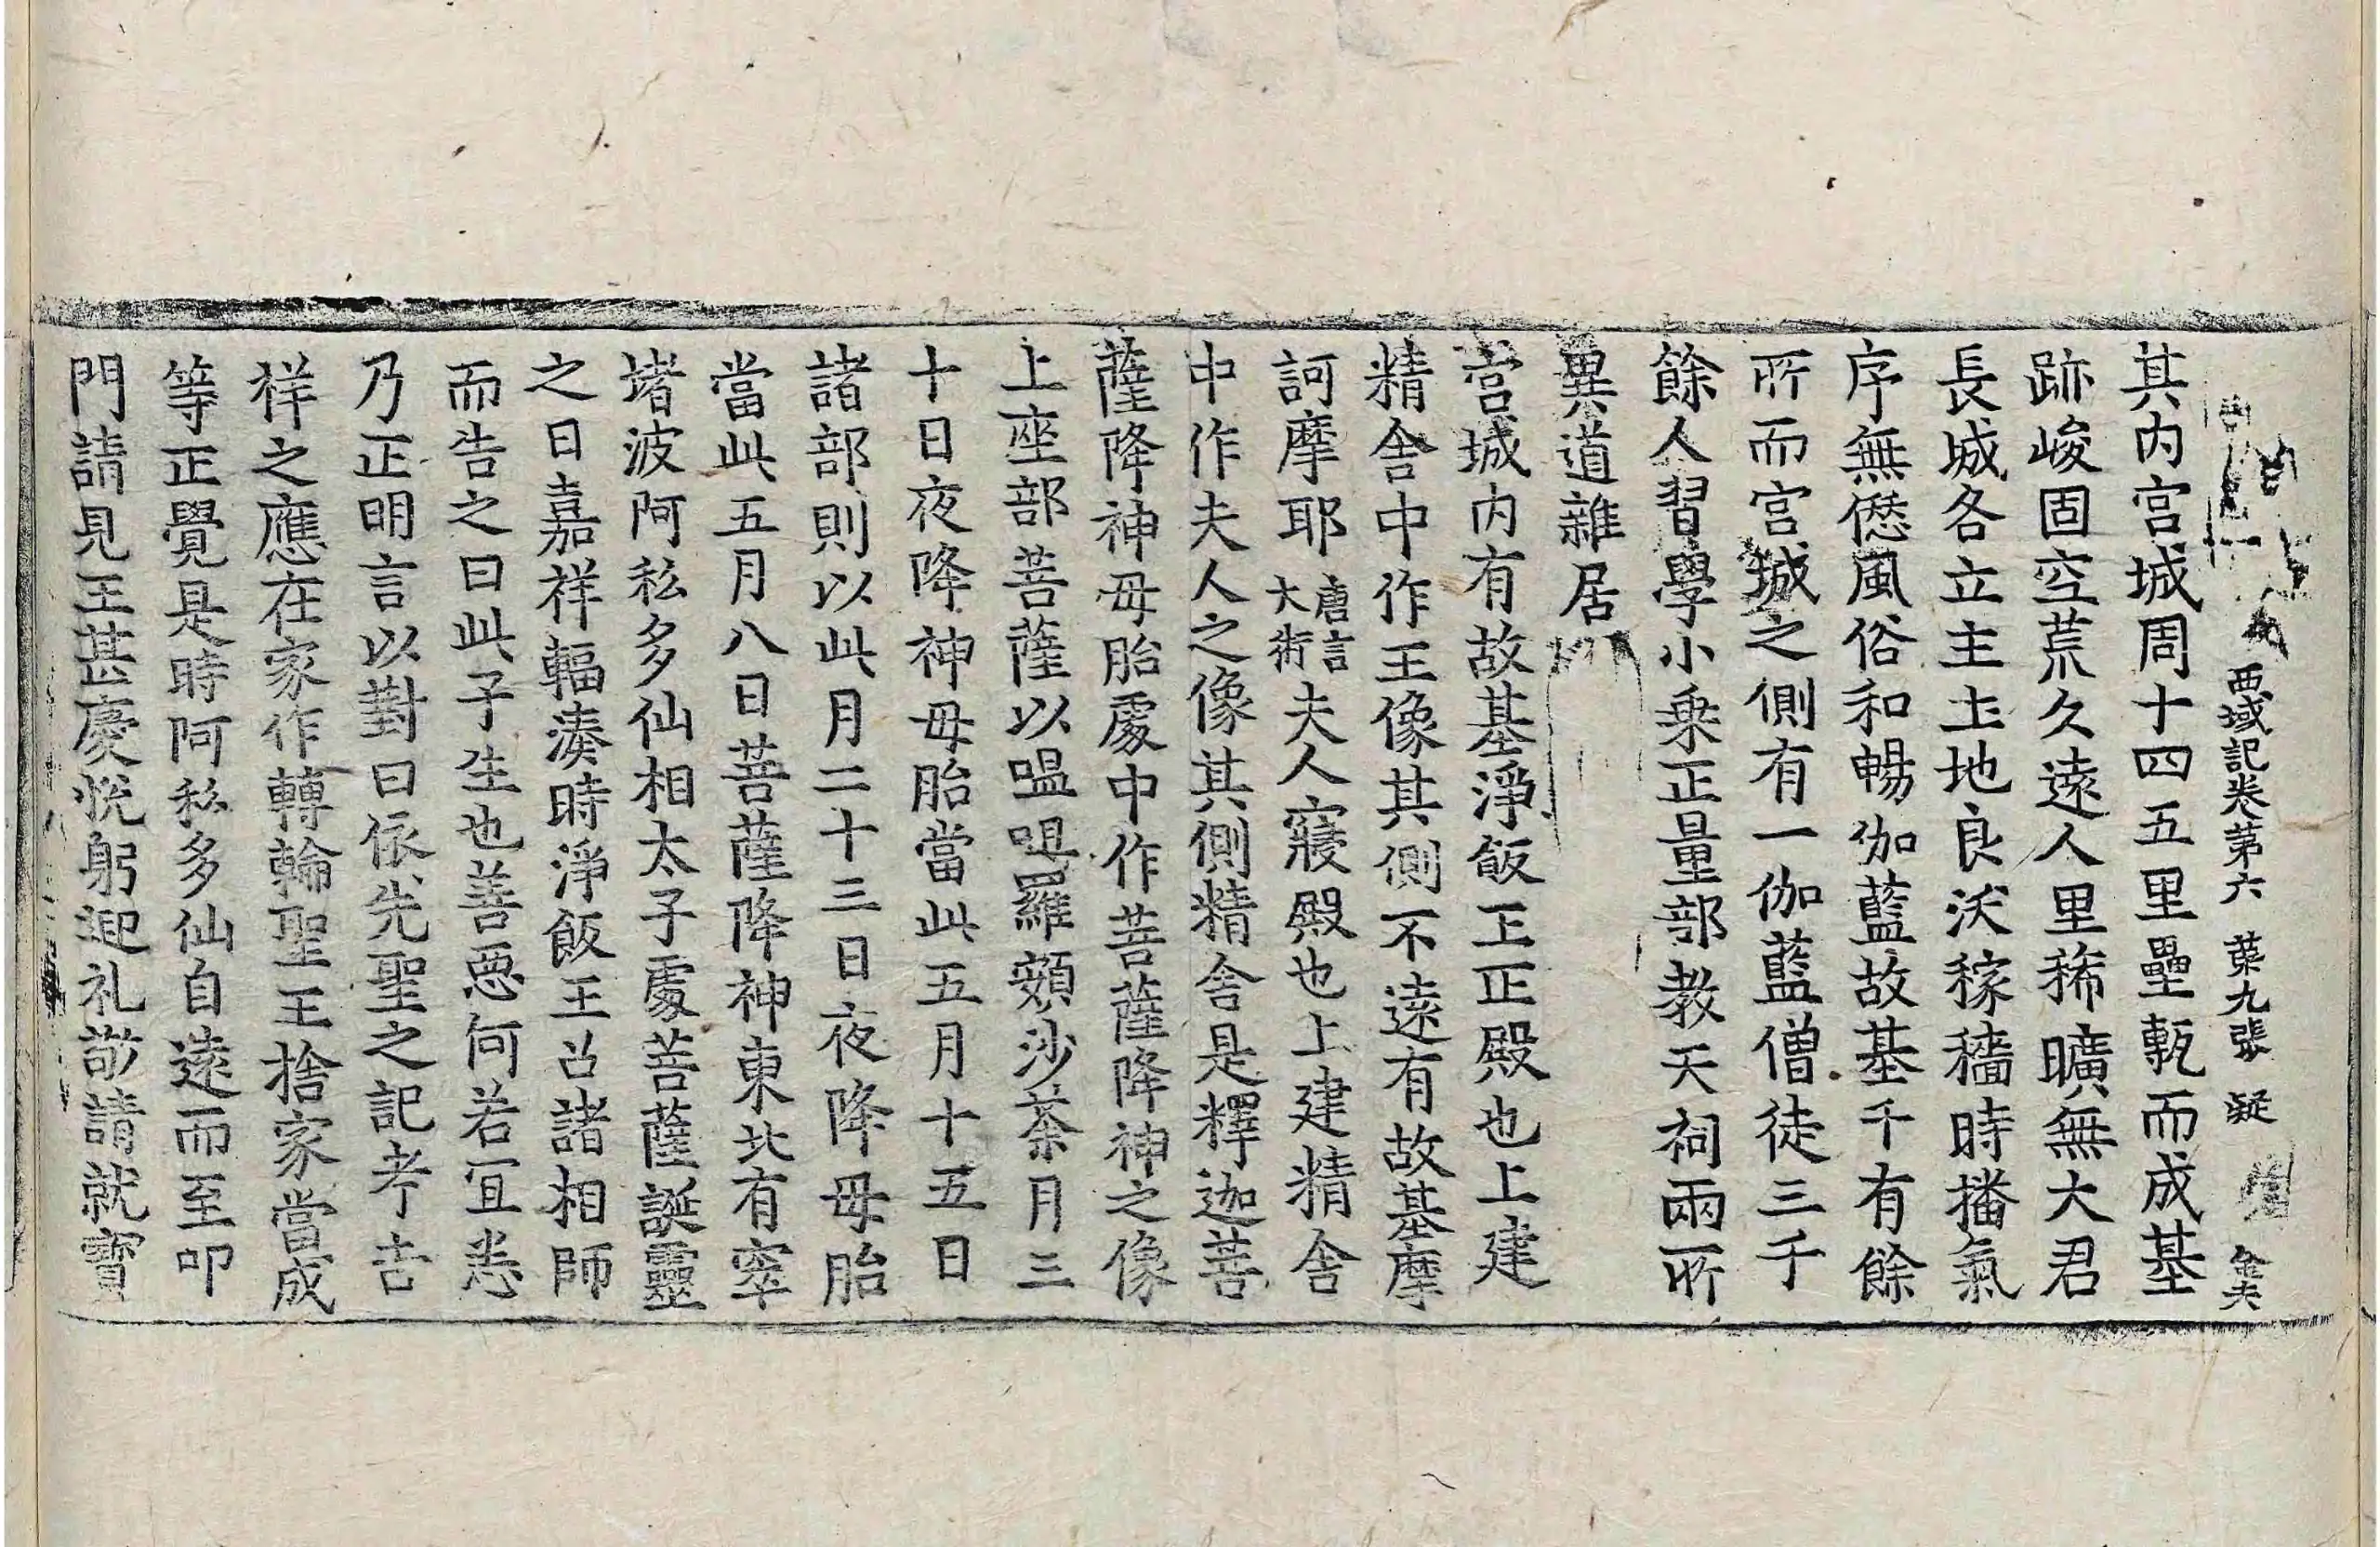 西域記卷第六　葉九張　凝
其内宮城周十四五里壘甎而成基
跡峻固空荒久遠人里稀曠無大君
長城各立主土地良沃稼穡時播氣
序無愆風俗和暢伽藍故基千有餘
所而宮城之側有一伽藍僧徒三千
餘人習學小乘正量部教天祠兩所
異道雜居
宮城内有故基淨飯王正殿也上建
精舍中作王像其側不遠有故基摩
訶摩耶唐言大術夫人寢殿也上建精舍
中作夫人之像其側精舍是釋迦菩
薩降神母胎處中作菩薩降神之像
上座部菩薩以嗢呾羅頞沙荼月三
十日夜降神母胎當此五月十五日
諸部則以此月二十三日夜降母胎
當此五月八日菩薩降神東北有窣
堵波阿私多仙相太子處菩薩誕靈
之日嘉祥輻湊時淨飯王召諸相師
而告之曰此子生也善惡何若宜悉
乃正明言以對曰依先聖之記考吉
祥之應在家作轉輪聖王捨家當成
等正覺是時阿私多仙自遠而至叩
門請見王甚慶悅躬迎礼敬請就寶